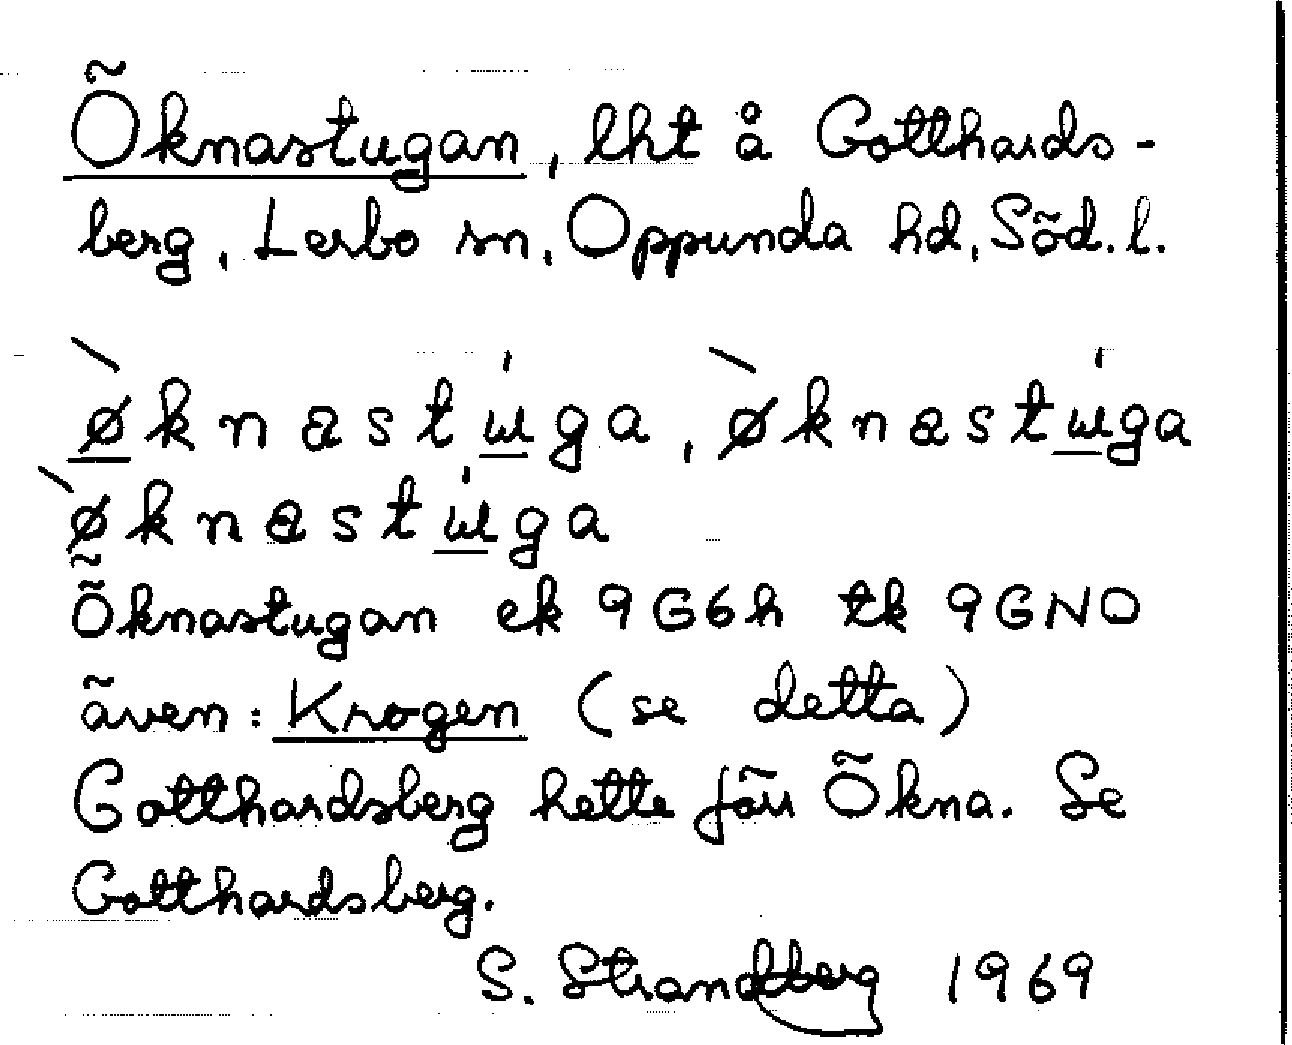 Öknastugan, lht å Gotthards-
berg, Lerbo sn, Oppunda hd, Söd. l.
ø̀knastɯ́ga, ø̀knastɯ́ga
ø̀knastɯ́ga
Öknastugan ek 9G6h tk 9GNO
även: Krogen (se detta)
Gotthardsberg hette förr Ökna. Se
Gotthardsberg.
S. Strandberg 1969